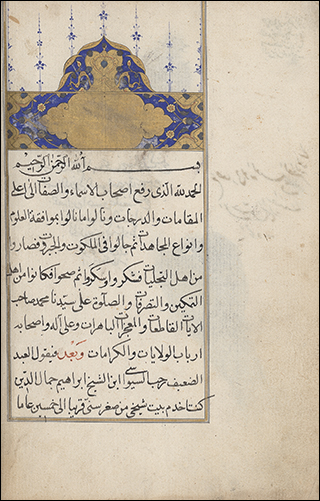 بسم الله الرحمن الرحيم
الحمد لله الذى رفع اصحاب الاسماء والصفات الى اعلى
المقامات والدرجات ونالوا ما نالوا بموافقة العلوم
وانواع المجاهدات ثم جالوا فى الملكوت والجبروت فصاروا
من اهل التجليات فشكروا وسكروا ثم صحوا فكانوا من اهل
التمكين والتصرفات والصلوة على سيدنا محمد صاحب
الايات القاطعات والمعجزات الباهرات وعلى آله واصحابه
ارباب الولايات والكرامات وبعد فيقول العبد
الضعيف رجب السيواسى ابن الشيخ ابراهيم جمال الدين
كنت اخدم بيت شيخى من صغر سنى قريبا الى خمسين عاما